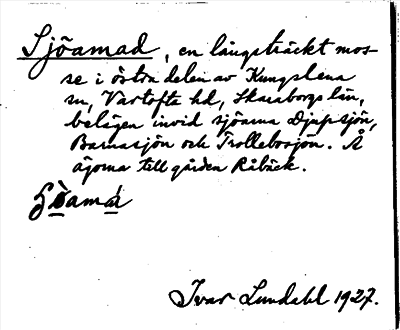 Sjöamad, en långsträckt mos-
se i östra delen av Kungslena
sn, Vartofta hd, Skaraborgs län,
belägen invid sjöarna Djupsjön,
Barnasjön och Trollebosjön. Å
ägorna till gården Råbäck.
Ivar Lundahl 1927.